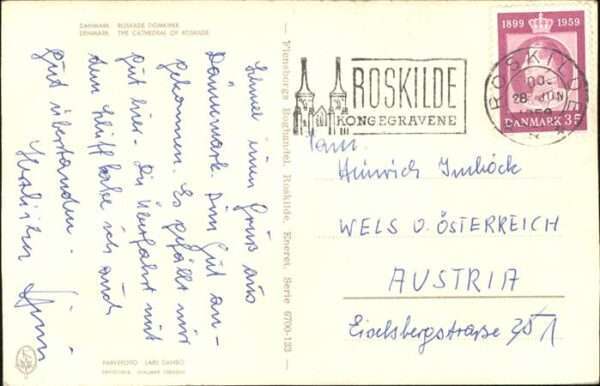 DANMARK ROSKILDE DOMKIRKE
DENMARK THE CATHEDRAL OF ROSKILDE
Schnell einen Gruß aus
Dänemark. Bin gut an-
gekommen. Es gefällt mir
gut hier. Die Überfahrt mit
dem Schiff habe ich auch
gut überstanden.
Herzlichst
FARVEFOTO LARS DANBO
Flensborgs Boghandel, Roskilde, Eneret. Serie 6700-133
1899 1959
DANMARK 35
ROSKILDE
28 JUN
ROSKILDE
KONGEGRAVENE
Fam.
Heinrich Imhöck
WELS O. ÖSTERREICH
AUSTRIA
Eiselsbergstraße 35/1